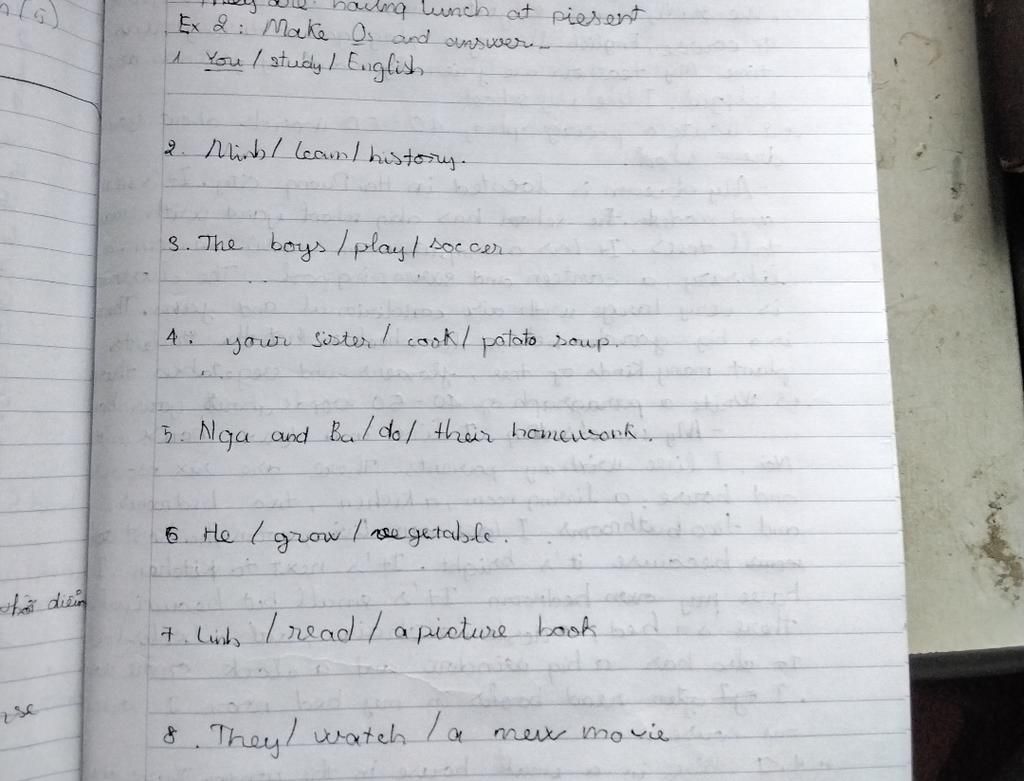 They are having lunch at piesent
Ex 2: Make Qs and answer.
1 You / study / English
2. Minh / learn / history.
3. The boys / play / soccer
4: your sister / cook / potato soup.
5. Nga and Ba / do / their homework.
6. He / grow / vegetable.
7. Linh / read / a picture book
8. They / watch / a new movie